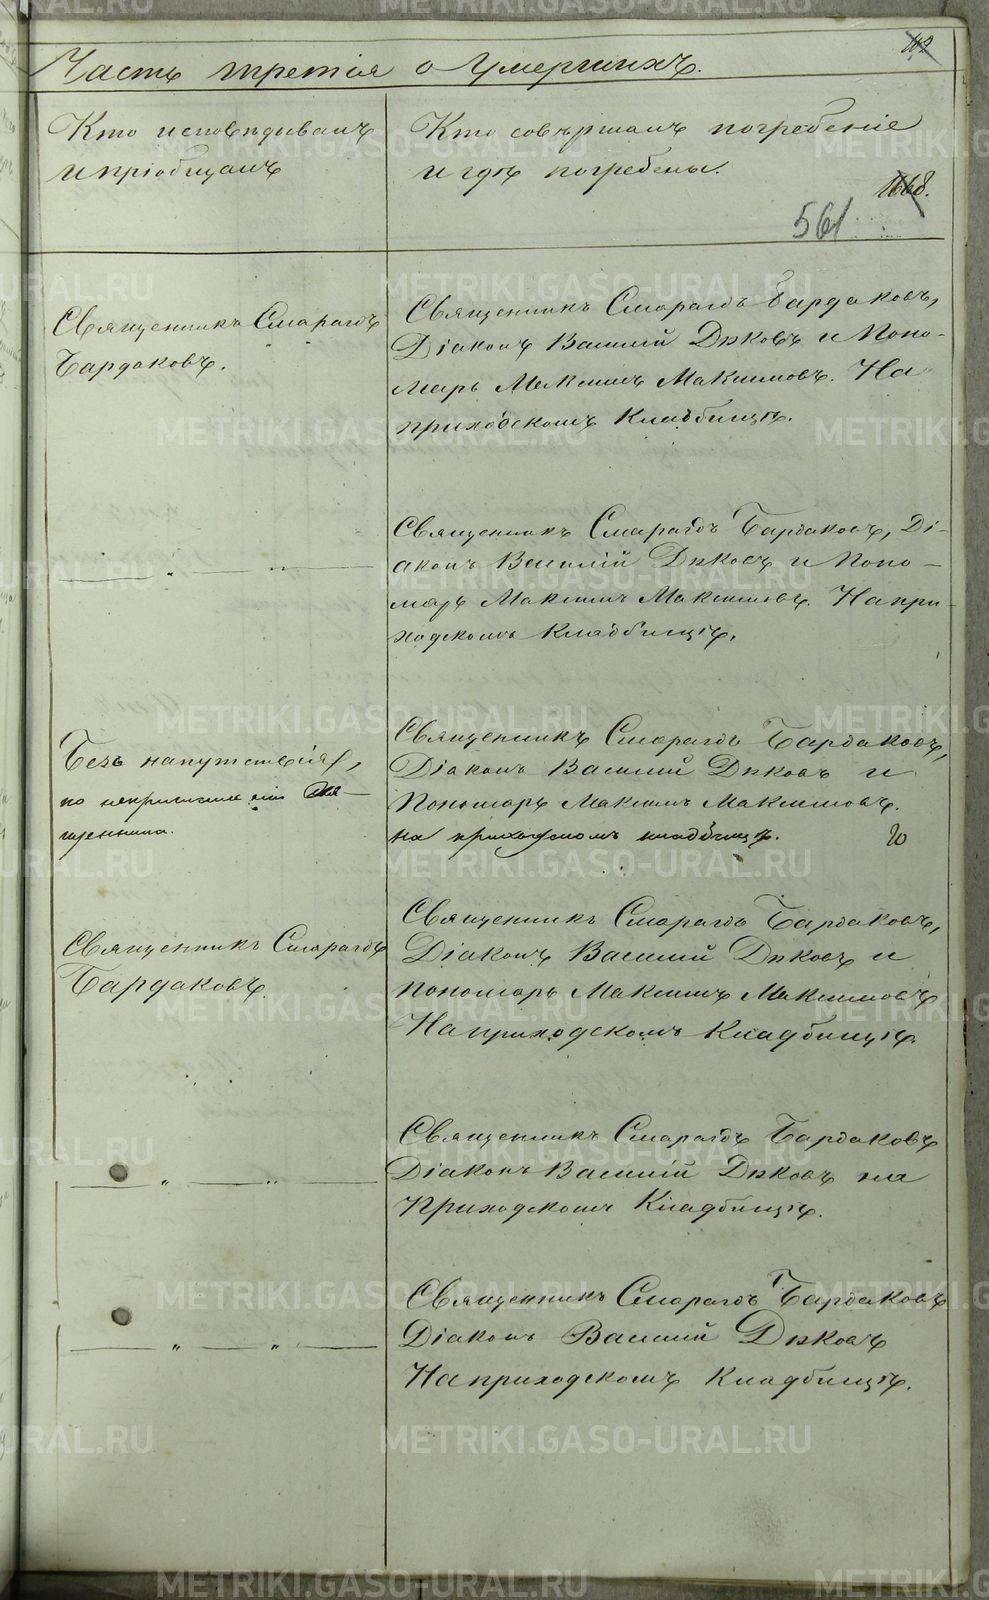 Часть третія о Умершихъ.
Кто исповѣдывалъ
и пріобщалъ
Кто совершалъ погребеніе
и гдѣ погребены.
561
Священникъ Смарагдъ
Бардаковъ.
Священникъ Смарагдъ Бардаковъ,
Діаконъ Василій Дѣковъ и Поно-
марь Максимъ Максимовъ. На
приходскомъ Кладбищѣ.
— „ — „ —
Священникъ Смарагдъ Бардаковъ, Ді-
аконъ Василій Дѣковъ и Поно-
марь Максимъ Максимовъ. На при-
ходскомъ кладбищѣ.
Безъ напутствія,
по
щенника.
Священникъ Смарагдъ Бардаковъ,
Діаконъ Василій Дѣковъ и
Пономарь Максимъ Максимовъ.
на приходскомъ кладбищѣ.
Священникъ Смарагдъ
Бардаковъ
Священникъ Смарагдъ Бардаковъ,
Діаконъ Василій Дѣковъ и
пономарь Максимъ Максимовъ
На приходскомъ Кладбищѣ.
— „ — „ —
Священникъ Смарагдъ Бардаковъ
Діаконъ Василій Дѣковъ на
Приходскомъ Кладбищѣ.
— „ — „ —
Священникъ Смарагдъ Бардаковъ
Діаконъ Василій Дѣковъ
На приходскомъ Кладбищѣ.
METRIKI.GASO-URAL.RU